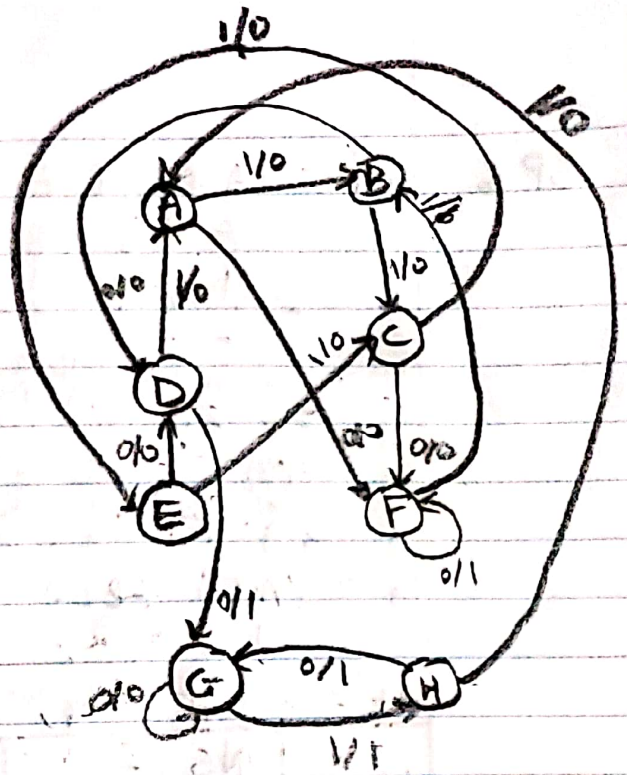 1/0
1/0
A
1/0
B
1/0
0/0
1/0
1/0
D
1/0
C
0/0
0/0
0/0
E
F
0/1
0/1
G
0/1
H
0/0
1/1